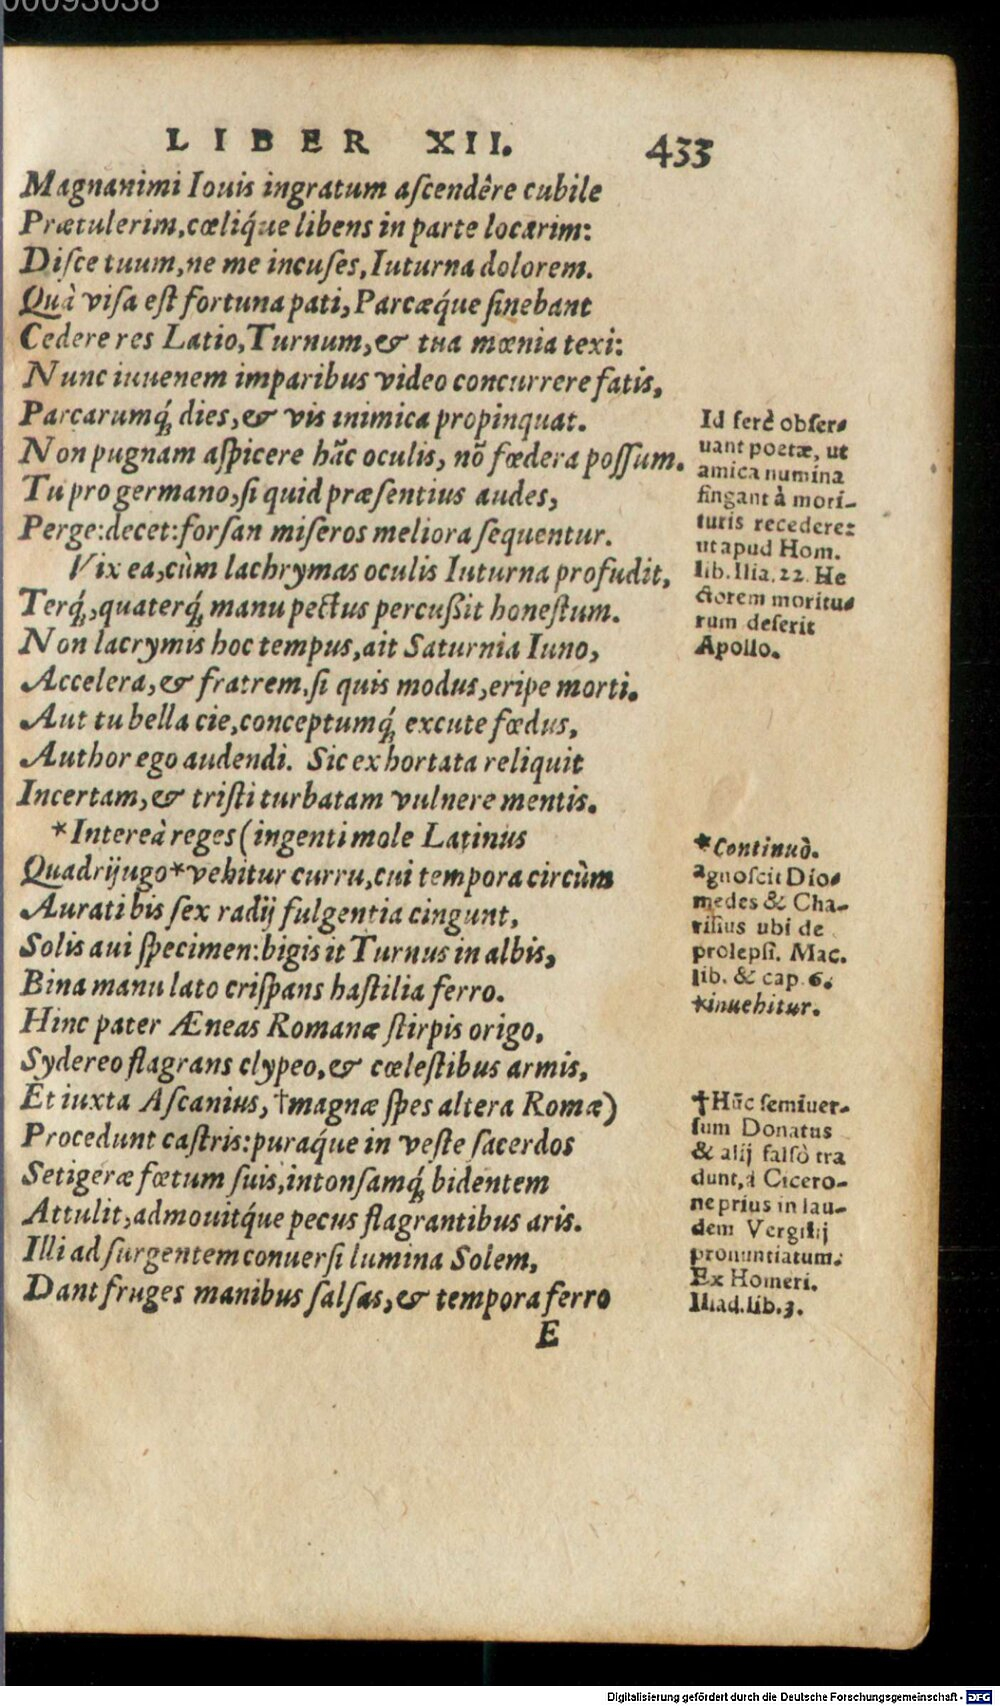 00093038
LIBER XII. 433
Magnanimi Iouis ingratum aſcendêre cubile
Prætulerim, cœliq́ue libens in parte locarim:
Diſce tuum, ne me incuſes, Iuturna dolorem.
Quà viſa eſt fortuna pati, Parcæq́ue ſinebant
Cedere res Latio, Turnum, & tua mœnia texi:
Nunc iuuenem imparibus video concurrere fatis,
Parcarumq́; dies, & vis inimica propinquat.
Non pugnam aſpicere hãc oculis, nõ fœdera poſſum.
Tu pro germano, ſi quid præſentius audes,
Perge: decet: forſan miſeros meliora ſequentur.
Vix ea, cùm lachrymas oculis Iuturna profudit,
Terq́;, quaterq́; manu pectus percußit honeſtum.
Non lacrymis hoc tempus, ait Saturnia Iuno,
Accelera, & fratrem, ſi quis modus, eripe morti.
Aut tu bella cie, conceptumq́; excute fœdus,
Author ego audendi. Sic exhortata reliquit
Incertam, & triſti turbatam vulnere mentis.
*Intereà reges (ingenti mole Latinus
Quadrijugo *vehitur curru, cui tempora circùm
Aurati bis ſex radij fulgentia cingunt,
Solis aui ſpecimen: bigis it Turnus in albis,
Bina manu lato criſpans haſtilia ferro.
Hinc pater Æneas Romanæ ſtirpis origo,
Sydereo flagrans clypeo, & cœleſtibus armis,
Et iuxta Aſcanius, †magnæ ſpes altera Romæ)
Procedunt caſtris: puraq́ue in veſte ſacerdos
Setigeræ fœtum ſuis, intonſamq́; bidentem
Attulit, admouitq́ue pecus flagrantibus aris.
Illi ad ſurgentem conuerſi lumina Solem,
Dant fruges manibus ſalſas, & tempora ferro
E
Id ferè obſer-
uant poetæ, ut
amica numina
fingant à mori-
turis recedere:
ut apud Hom.
lib. Ilia. 22. He
ctorem moritu-
rum deſerit
Apollo.
*Continuò.
agnoſcit Dio-
medes & Cha-
riſius ubi de
prolepſi. Mac.
lib. & cap. 6.
*inuehitur.
†Hũc ſemiuer-
ſum Donatus
& alij falſò tra
dunt, à Cicero-
ne prius in lau-
dem Vergilij
pronuntiatum.
Ex Homeri.
Iliad. lib. 3.
Digitalisierung gefördert durch die Deutsche Forschungsgemeinschaft - DFG